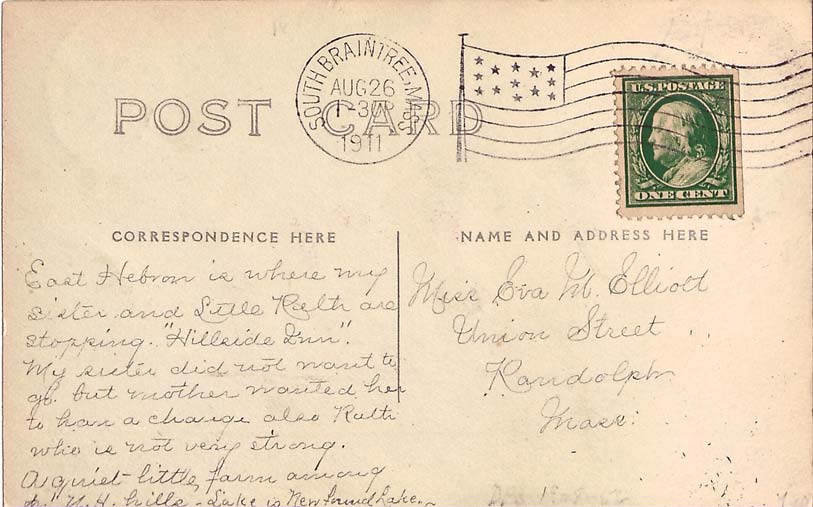 POST CARD
SOUTH BRAINTREE, MASS
AUG 26
1-30P
1911
U.S. POSTAGE
ONE CENT
CORRESPONDENCE HERE
East Hebron is where my
sister and Little Ruth are
stopping. "Hillside Inn".
My sister did not want to
go but mother wanted her
to have a change also Ruth
who is not very strong.
A quiet little farm among
N. H. hills - Lake is Newfound Lake.
NAME AND ADDRESS HERE
Miss Eva M. Elliott
Union Street
Randolph
Mass.